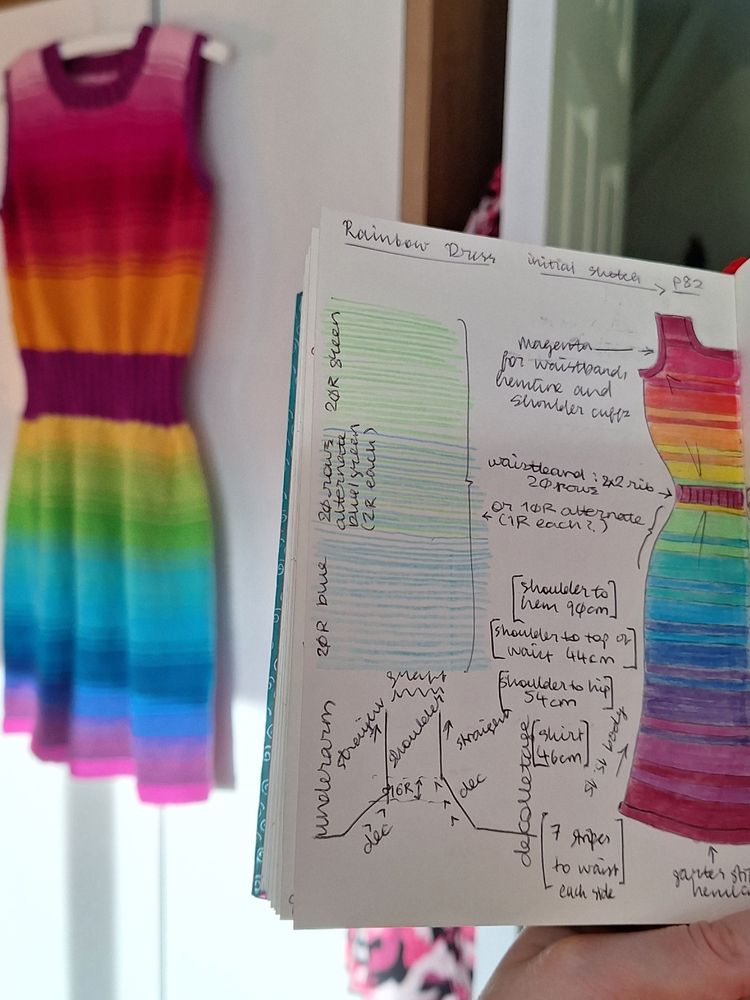 Rainbow Dress
initial sketch → p82
magenta
for waistband,
hemline and
shoulder cuffs
20R green
20 rows
alternate
blue/green
(2R each)
20R blue
waistband: 2x2 rib
20 rows
or 10R alternate
(1R each?)
[shoulder to
hem 90cm]
[shoulder to top of
waist 44cm]
[shoulder to hip
54cm]
[skirt
46cm]
body
graft
straight
shoulder
straight
underarm
16R
dec
dec
decolletage
[7 stripes
to waist
each side]
garter sti
hemline